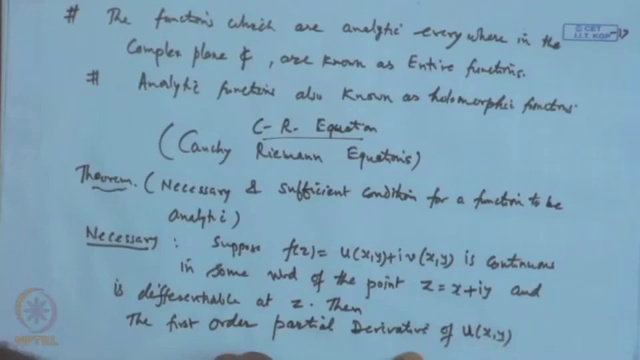 # The functions which are analytic everywhere in the
Complex plane ₵, are known as Entire functions.
# Analytic functions also known as holomorphic functions.
C-R. Equation
(Cauchy Riemann Equations)
Theorem. (Necessary & sufficient condition for a function to be
analytic)
Necessary : Suppose f(z) = u(x,y)+iv(x,y) is continuous
in some nbd of the point z=x+iy and
is differentiable at z. Then
The first order partial Derivative of u(x,y)
© CET
I.I.T. KGP
NPTEL